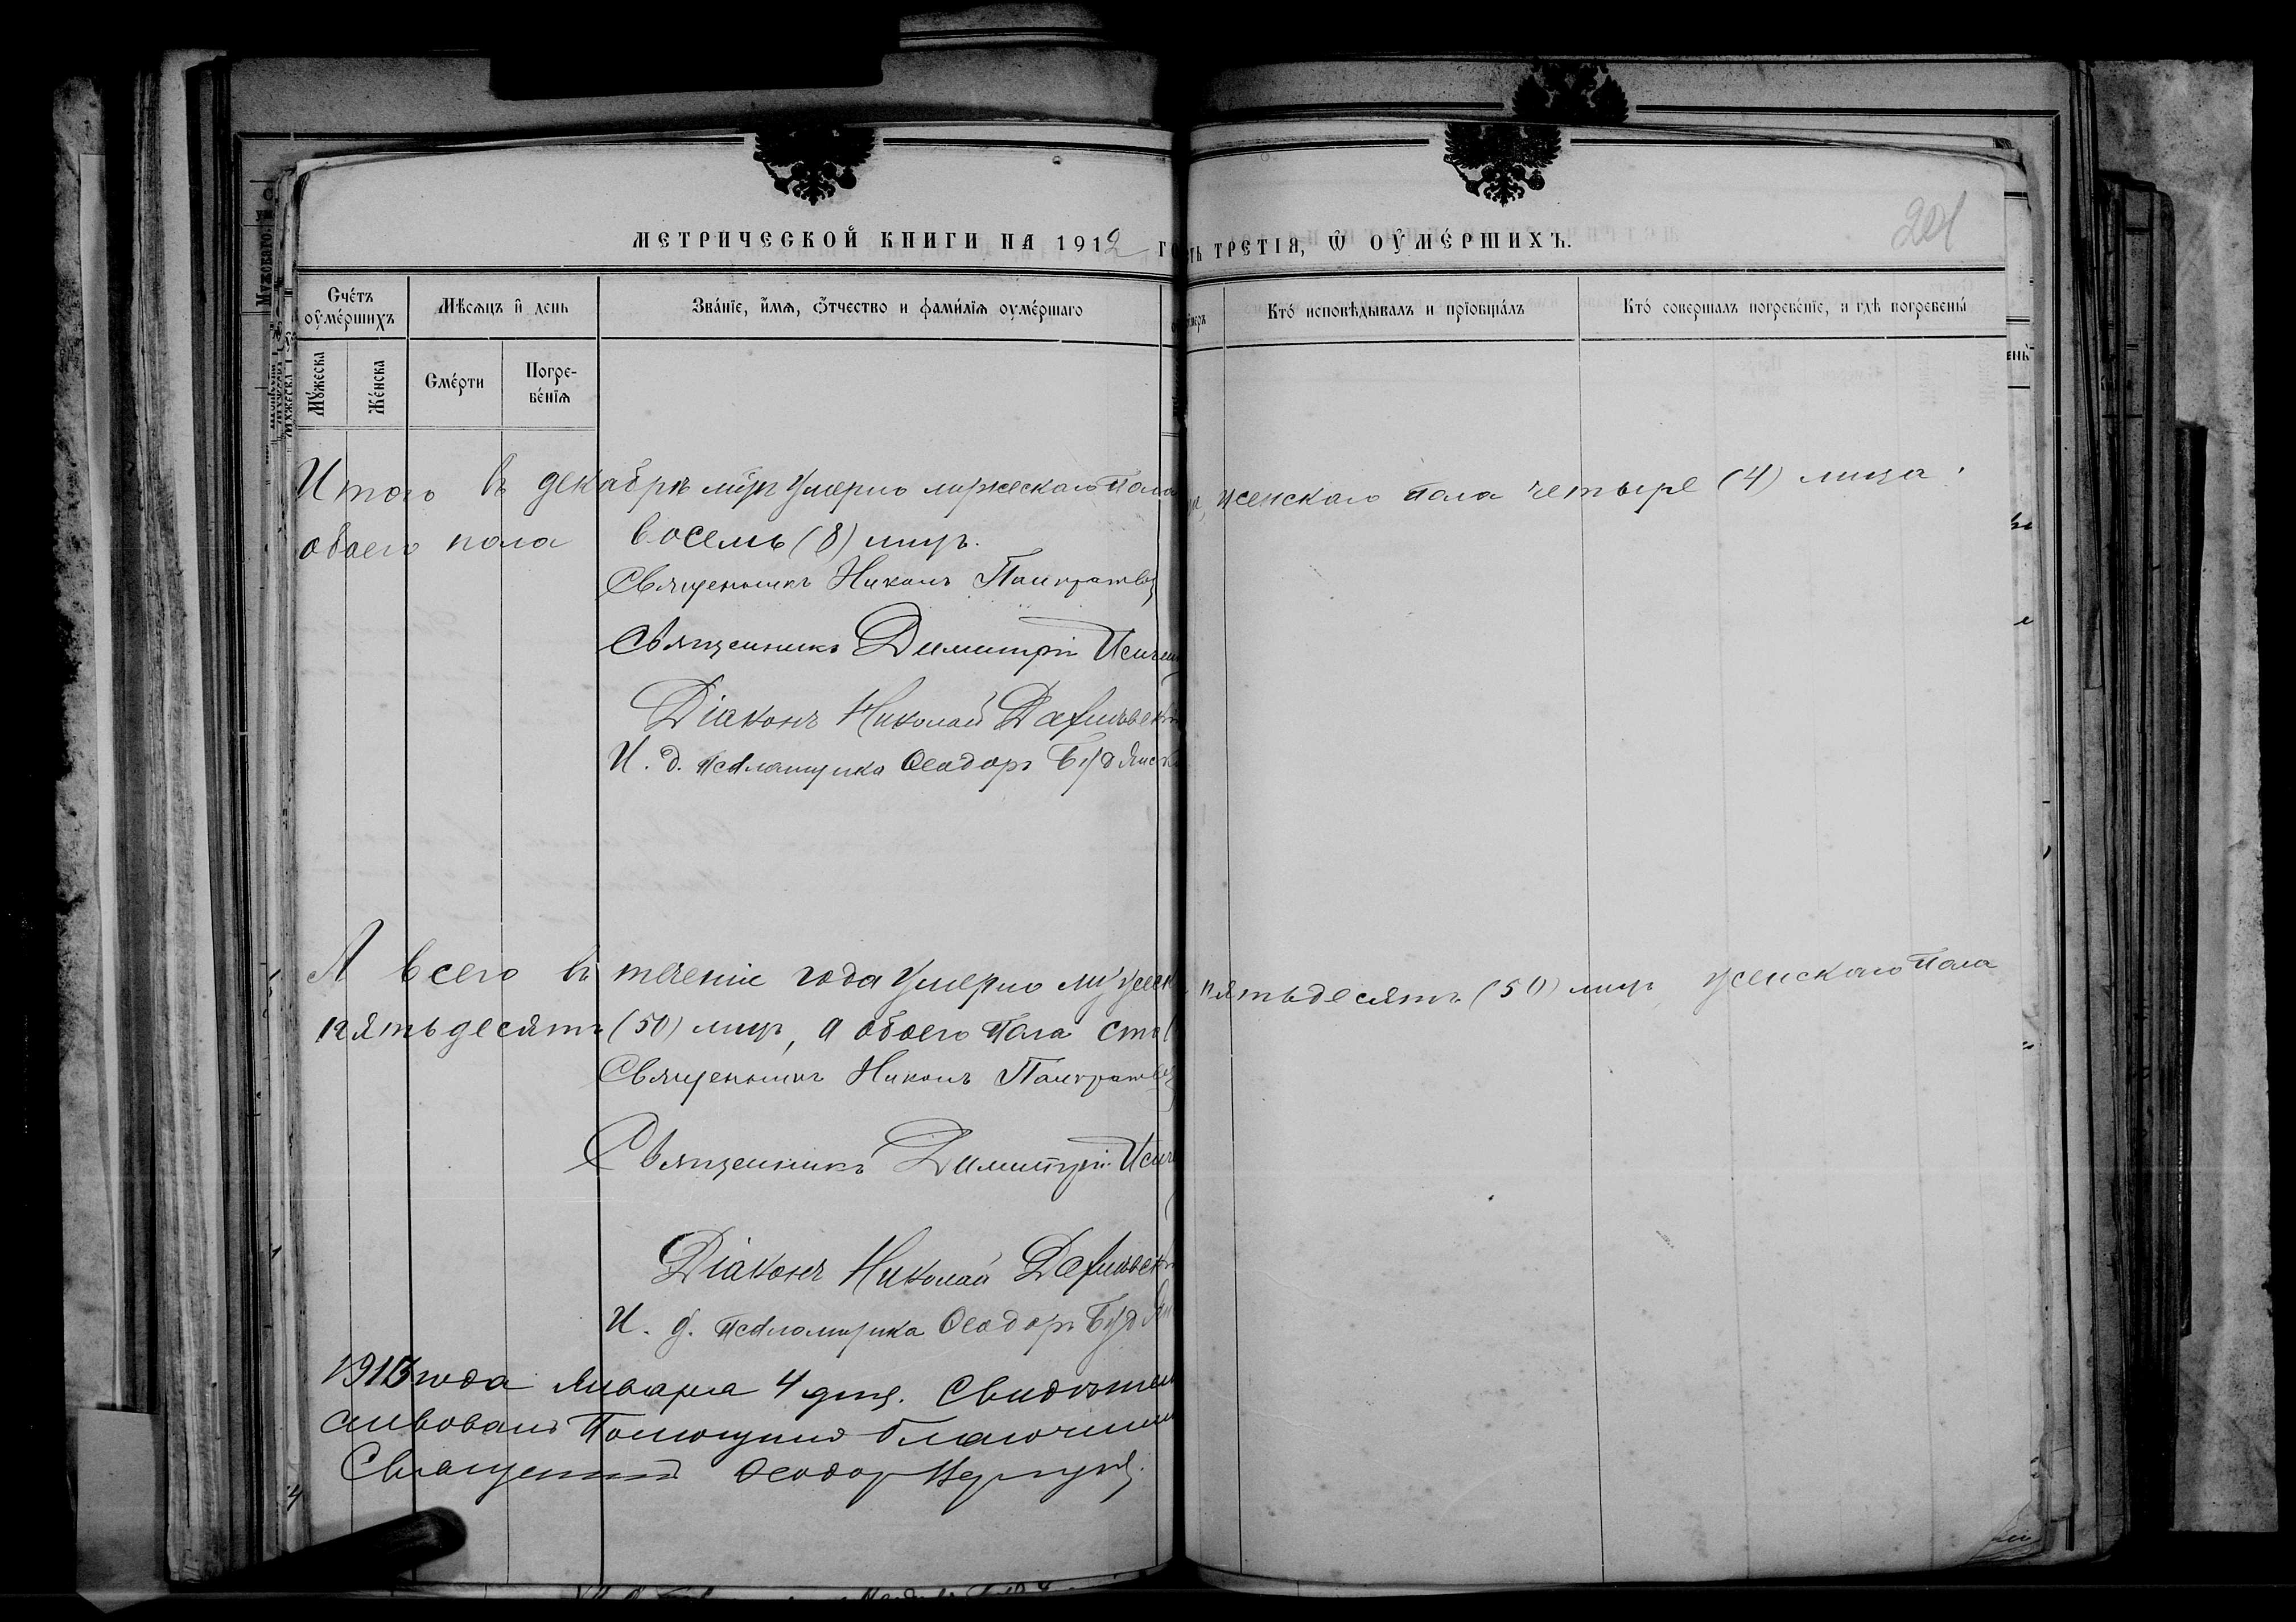 МЕТРИЧЕСКОЙ КНИГИ НА 1912 ГО
ТРЕТІЯ, Ѿ ОУМЕ́РШИХЪ.
201
Сче́тъ оумéршихъ
Мѣсяцъ и день
Зва́ніе, и́мя, ѻтчество и фами́лія оумéршаго
Кто́ исповѣ́дывалъ и пріобща́лъ
Кто́ соверша́лъ погребе́ніе, и гдѣ погребены́
Му́жеска
Же́нска
Сме́рти
Погре-
бе́нія
Итого въ декабрѣ мцѣ умерло мужескаго пола
женскаго пола четыре (4) лица.
обоего пола восемь (8) лицъ.
Священникъ Николъ
Священникъ Димитрій
Діаконъ Николай
И. д. псаломщика Ѳеодоръ
А всего въ теченіе года умерло мужеск
пятьдесятъ (50) лицъ, женскаго пола
пятьдесятъ (50) лицъ, а обоего пола сто (
Священникъ Николъ
Священникъ Димитрій
Діаконъ Николай
И. д. псаломщика Ѳеодоръ
1913 года Января 4 дня. Свидѣтель
ствовалъ Помощникъ благочинн
Священникъ Ѳеодор